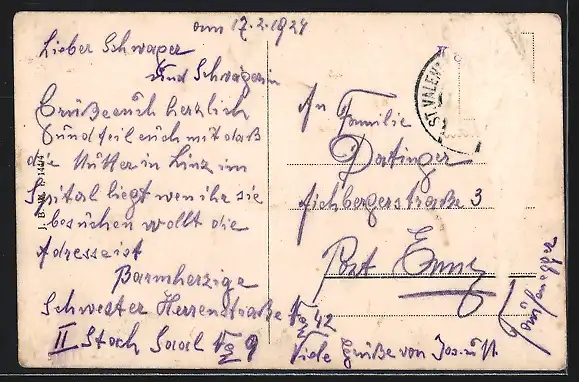 am 17.2.1924
Lieber Schwager
und Schwägerin
Grüße euch herzlich
und teil euch mit daß
die Mutter in Linz im
Spital liegt wen ihr sie
besuchen wollt die
Adresse ist
Barmherzige
Schwester Herrenstraße No 42
II Stock Saal No 9
Viele Grüße von
An
Familie
Datinger
Aichbergerstraße 3
Post Enns
ST. VALEN